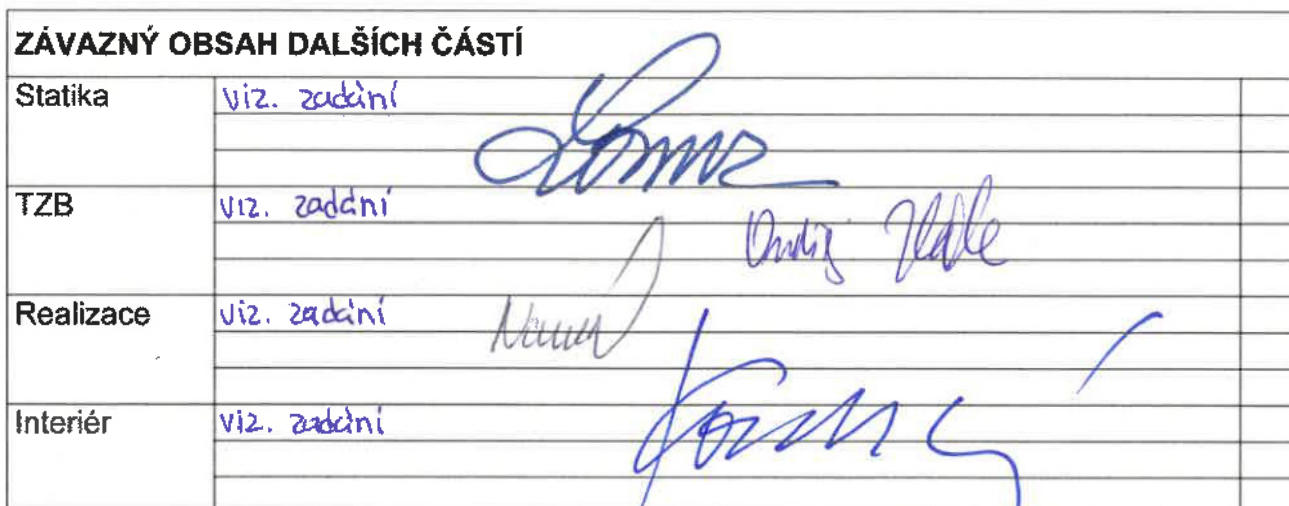 ZÁVAZNÝ OBSAH DALŠÍCH ČÁSTÍ
Statika viz. zadání
TZB viz. zadání
Realizace viz. zadání
Interiér viz. zadání